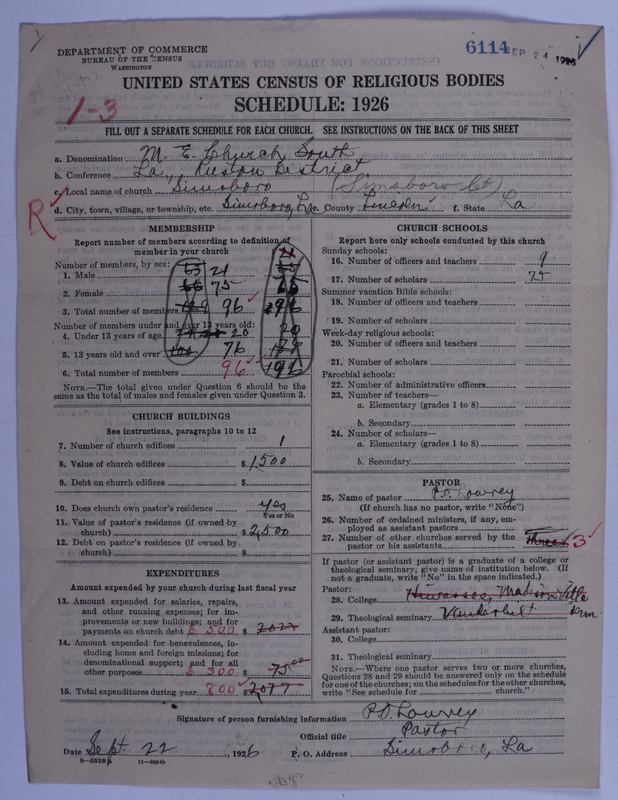 6114 SEP 24 1926
DEPARTMENT OF COMMERCE
BUREAU OF THE CENSUS
WASHINGTON
UNITED STATES CENSUS OF RELIGIOUS BODIES
SCHEDULE: 1926
1-3
FILL OUT A SEPARATE SCHEDULE FOR EACH CHURCH. SEE INSTRUCTIONS ON THE BACK OF THIS SHEET
a. Denomination M. E. Church South
b. Conference La., Ruston District
c. Local name of church Simsboro (Simsboro Ct)
R
d. City, town, village, or township, etc. Simsboro, La e. County Lincoln f. State La
MEMBERSHIP
Report number of members according to definition of
member in your church
Number of members, by sex:
1. Male 21
2. Female 75
3. Total number of members 96
Number of members under and over 13 years old:
4. Under 13 years of age 20
5. 13 years old and over 76
6. Total number of members 96
NOTE.—The total given under Question 6 should be
the same as the total of males and females given under Question 3.
CHURCH BUILDINGS
See instructions, paragraphs 10 to 12
7. Number of church edifices 1
8. Value of church edifices $1500
9. Debt on church edifices $
10. Does church own pastor's residence yes
Yes or No
11. Value of pastor's residence (if owned by
church) $2,500
12. Debt on pastor's residence (if owned by
church) $
EXPENDITURES
Amount expended by your church during last fiscal year
13. Amount expended for salaries, repairs,
and other running expenses; for im-
provements or new buildings; and for
payments on church debt $ 500 $
14. Amount expended for benevolences, in-
cluding home and foreign missions; for
denominational support; and for all
other purposes $ 300 $ 75.00
15. Total expenditures during year 800 $2077
CHURCH SCHOOLS
Report here only schools conducted by this church
Sunday schools:
16. Number of officers and teachers 9
17. Number of scholars 75
Summer vacation Bible schools:
18. Number of officers and teachers
19. Number of scholars
Week-day religious schools:
20. Number of officers and teachers
21. Number of scholars
Parochial schools:
22. Number of administrative officers
23. Number of teachers—
a. Elementary (grades 1 to 8)
b. Secondary
24. Number of scholars—
a. Elementary (grades 1 to 8)
b. Secondary
PASTOR
25. Name of pastor P.O. Lowrey
(If church has no pastor, write "None")
26. Number of ordained ministers, if any, em-
ployed as assistant pastors
27. Number of other churches served by the
pastor or his assistants three 3
If pastor (or assistant pastor) is a graduate of a college or
theological seminary, give name of institution below. (If
not a graduate, write "No" in the space indicated.)
Pastor:
28. College Hiwassee, Madisonville
Tenn.
29. Theological seminary Vanderbilt
Assistant pastor:
30. College
31. Theological seminary
NOTE.—Where one pastor serves two or more churches,
Questions 28 and 29 should be answered only on the schedule
for one of the churches; on the schedules for the other churches,
write "See schedule for church."
Signature of person furnishing information P.O. Lowrey
Official title Pastor
Date Sept 22, 1926 P. O. Address Simsboro, La